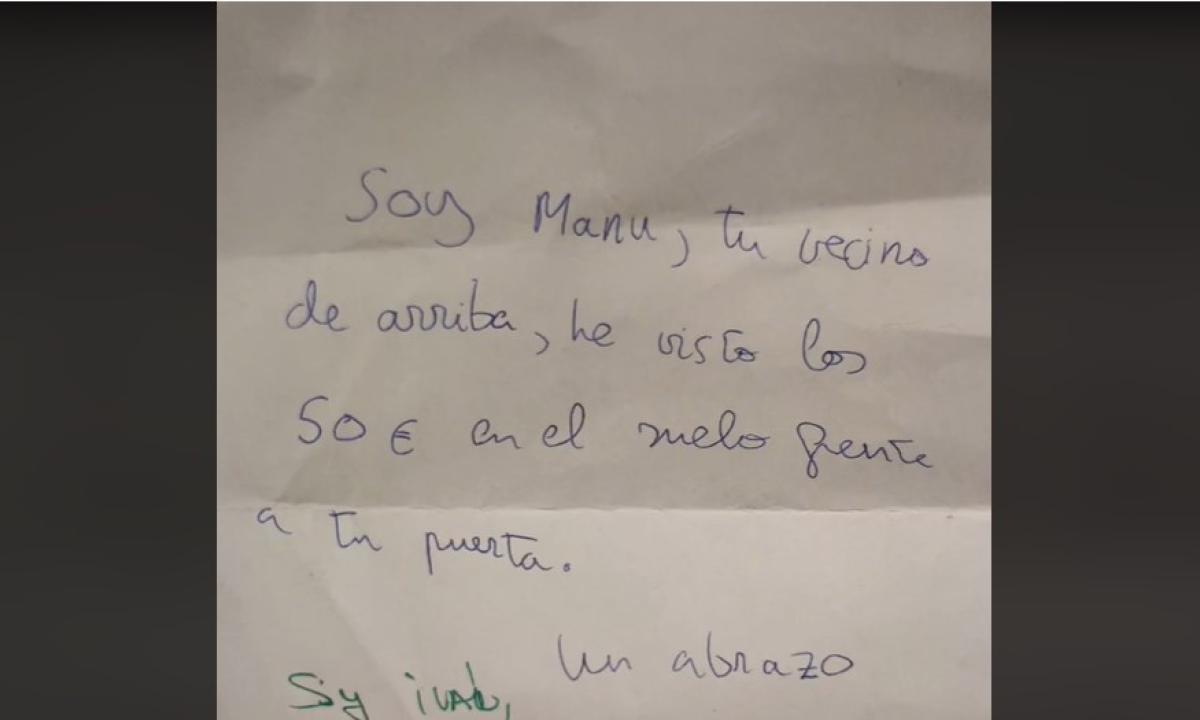 Soy Manu, tu vecino
de arriba, he visto los
50 € en el suelo frente
a tu puerta.
Un abrazo
Soy ivan,